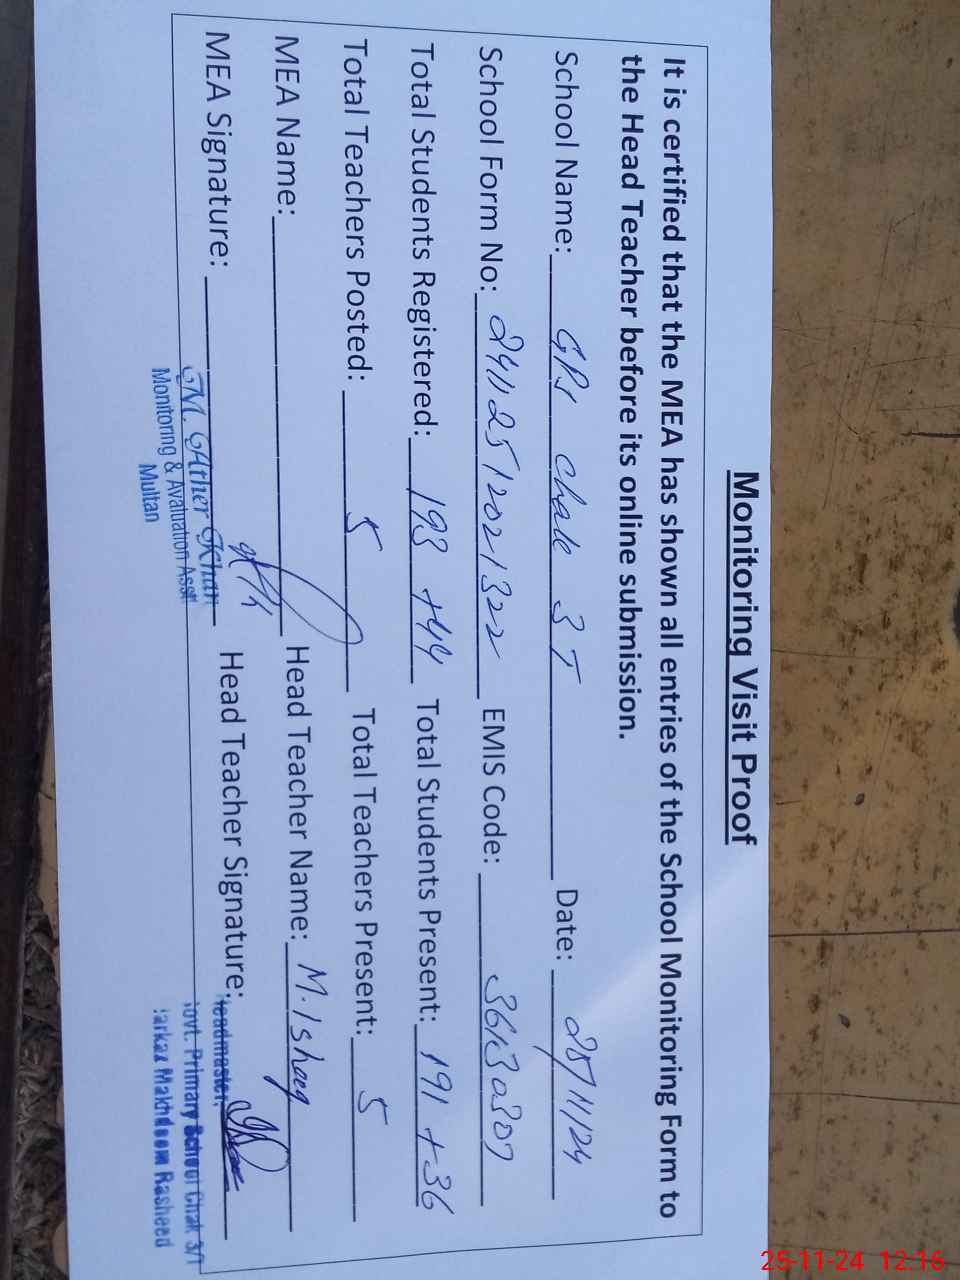 Monitoring Visit Proof
It is certified that the MEA has shown all entries of the School Monitoring Form to
the Head Teacher before its online submission.
School Name: GPS Chak 3T Date: 25/11/24
School Form No: 24112512021322 EMIS Code: 36130307
Total Students Registered: 193 +44 Total Students Present: 191 +36
Total Teachers Posted: 5 Total Teachers Present: 5
MEA Name: Head Teacher Name: M. Ishaq
MEA Signature: Head Teacher Signature:
M. Ather Khan
Monitoring & Evaluation Asst:
Multan
Headmaster
Govt. Primary School Chak 3/T
Markaz Makhdoom Rasheed
25-11-24 12:16